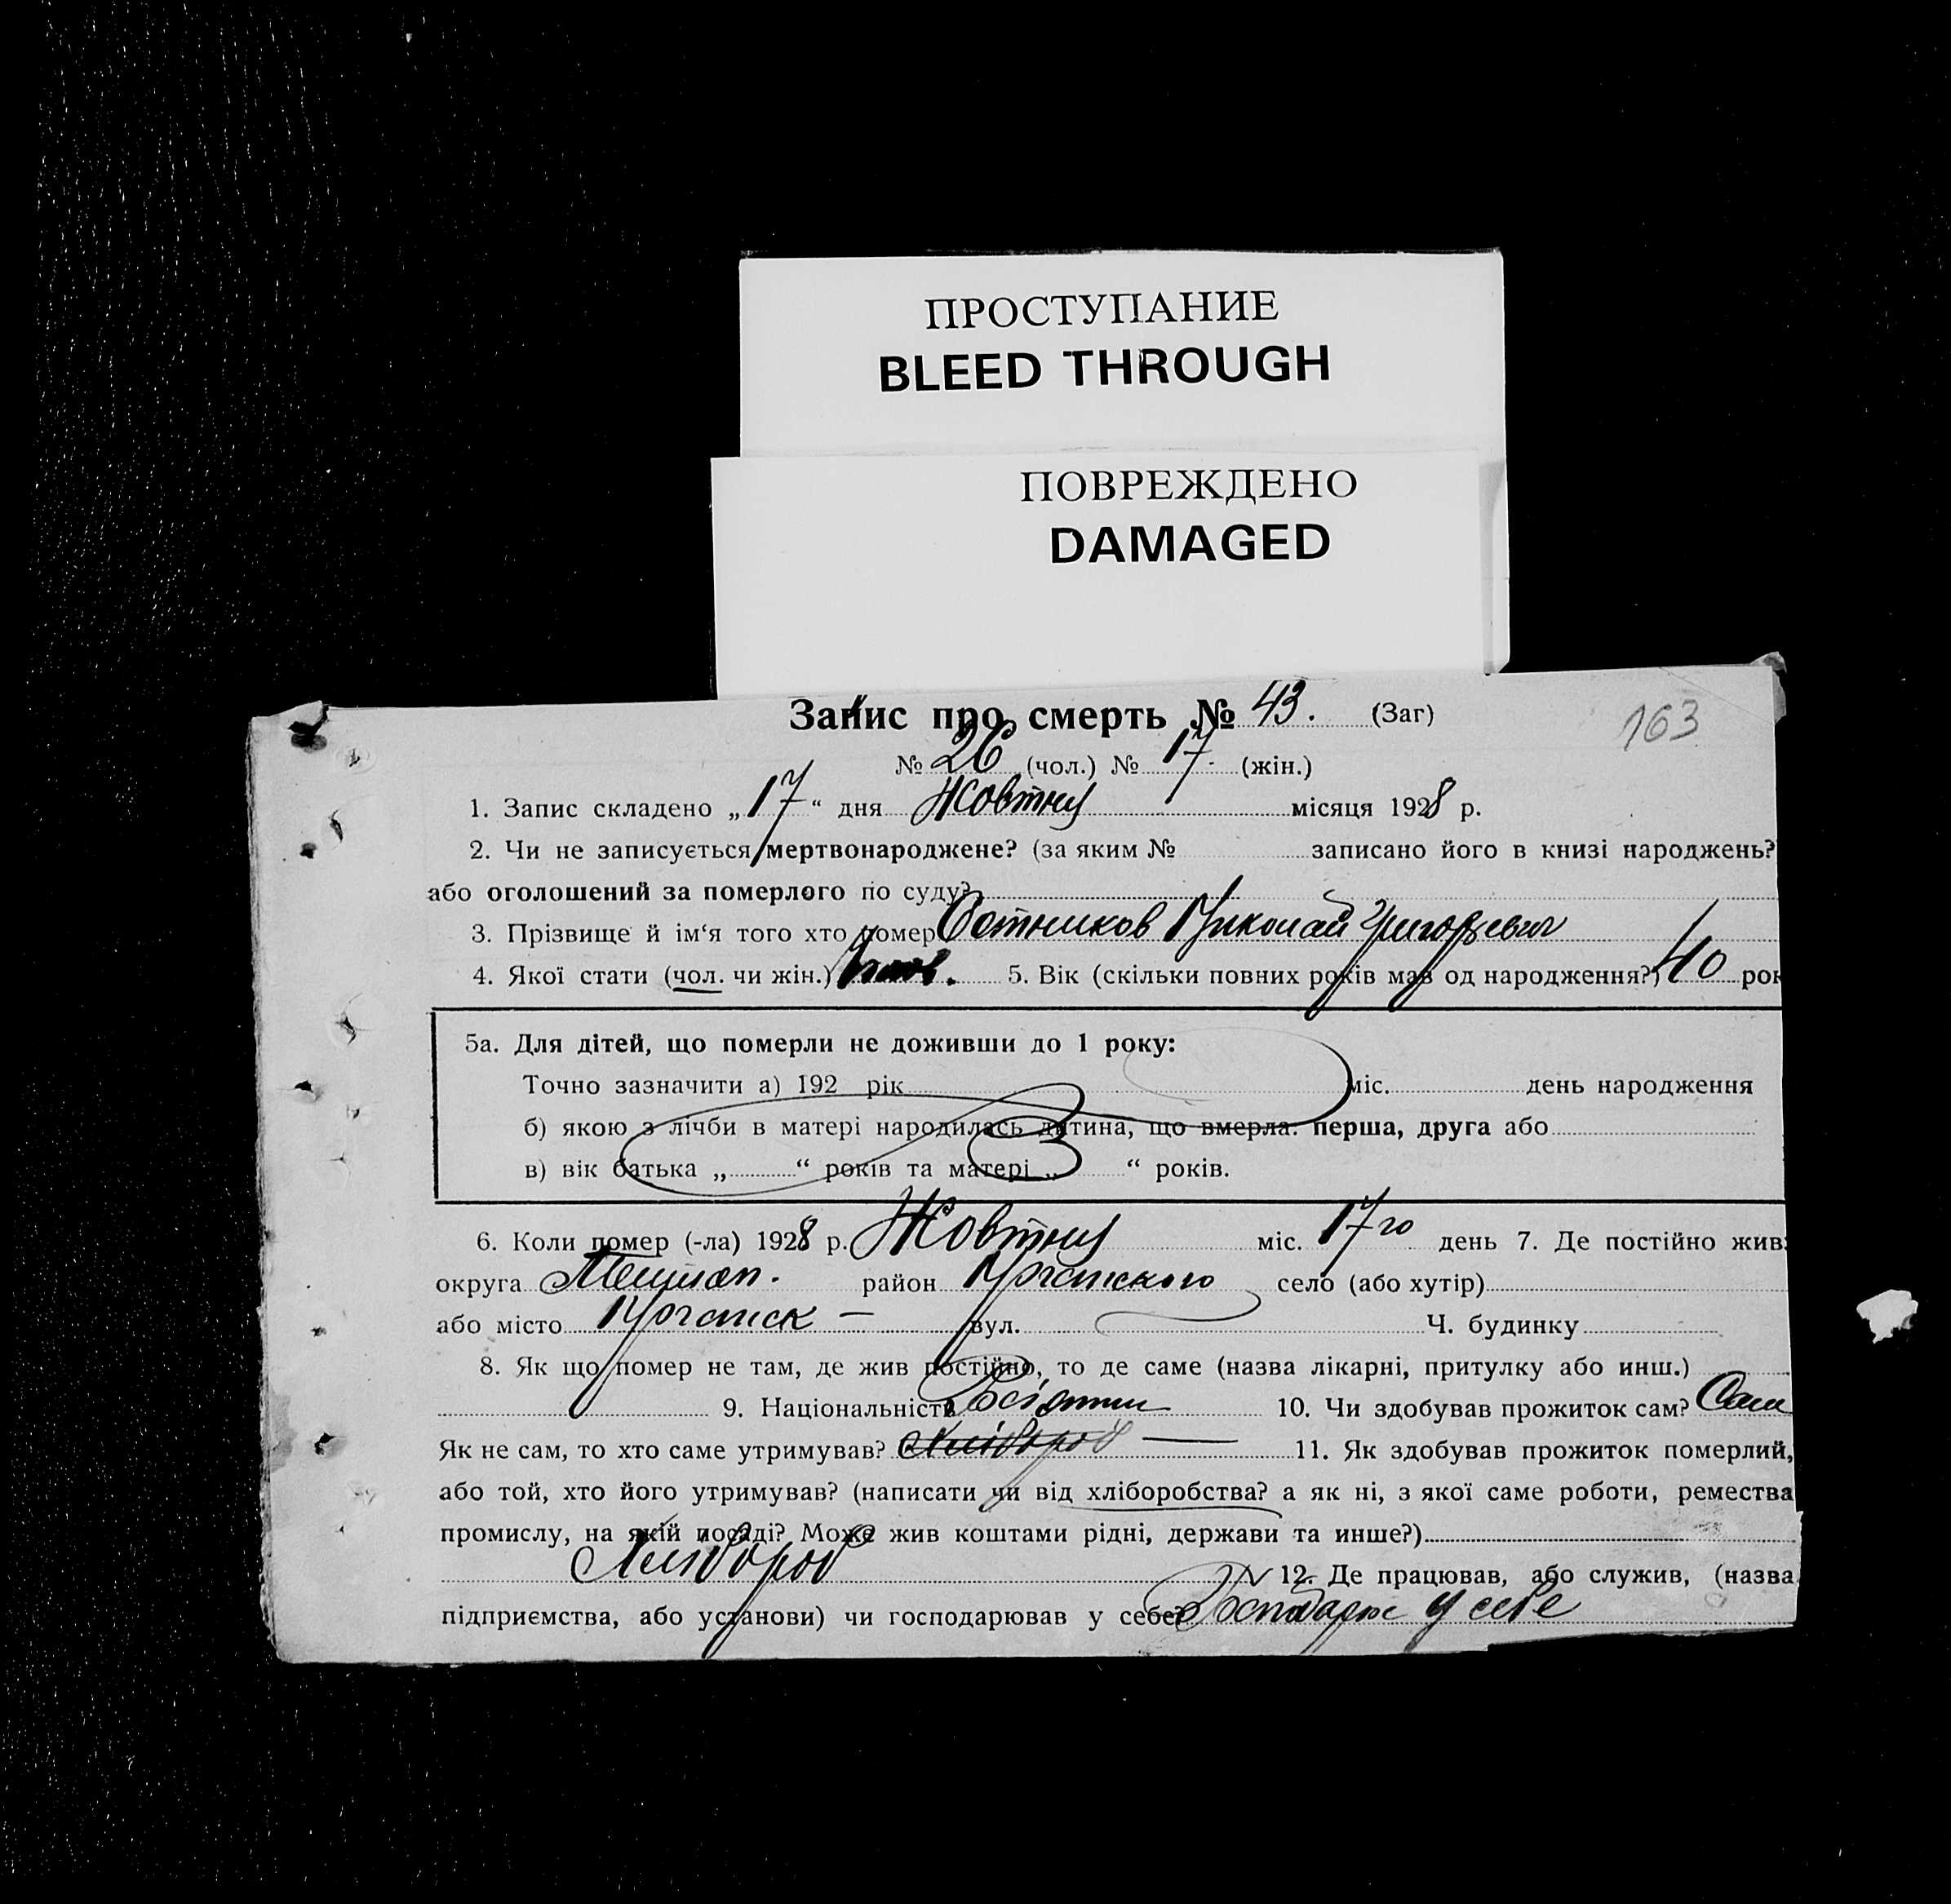 ПРОСТУПАНИЕ
BLEED THROUGH
ПОВРЕЖДЕНО
DAMAGED
Запис про смерть № 43. (Заг)
163
№ 26 (чол.) № 17 (жін.)
1. Запис складено „17“ дня Жовтня місяця 1928 р.
2. Чи не записується мертвонароджене? (за яким № записано його в книзі народжень?
або оголошений за померлого по суду?
3. Прізвище й ім‘я того хто помер Сотников Николай Григорьевич
4. Якої стати (чол. чи жін.) 5. Вік (скільки повних років мав од народження?) 40 рок
5а. Для дітей, що померли не доживши до 1 року:
Точно зазначити а) 192 рік міс. день народження
б) якою з лічби в матері народилась дитина, що вмерла: перша, друга або
в) вік батька „ “ років та матері „ “ років.
6. Коли помер (-ла) 1928 р. Жовтня міс. 17го день 7. Де постійно жив:
округа район село (або хутір)
або місто вул. Ч. будинку
8. Як що помер не там, де жив постійно, то де саме (назва лікарні, притулку або инш.)
9. Національність 10. Чи здобував прожиток сам? Сам
Як не сам, то хто саме утримував? Хлібороб 11. Як здобував прожиток померлий,
або той, хто його утримував? (написати чи від хліборобства? а як ні, з якої саме роботи, ремества
промислу, на якій посаді? Може жив коштами рідні, держави та инше?)
Хлібороб 12. Де працював, або служив, (назва
підприємства, або установи) чи господарював у себе? у себе